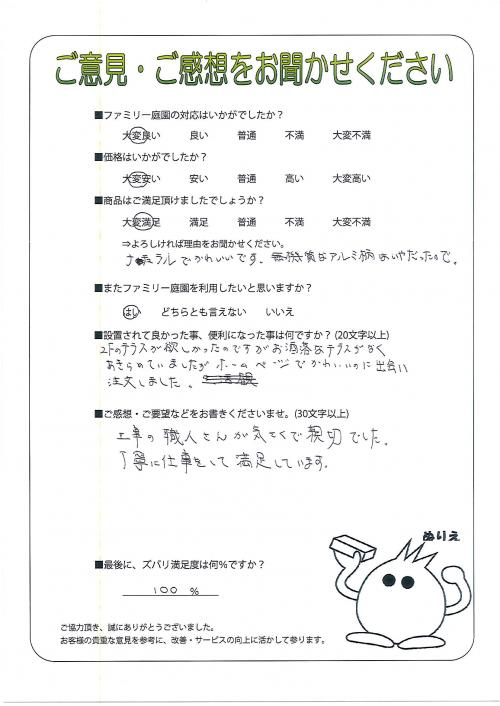 ご意見・ご感想をお聞かせください
■ファミリー庭園の対応はいかがでしたか？
大変良い 良い 普通 不満 大変不満
■価格はいかがでしたか？
大変安い 安い 普通 高い 大変高い
■商品はご満足頂けましたでしょうか？
大変満足 満足 普通 不満 大変不満
⇒よろしければ理由をお聞かせください。
ナチュラルでかわいいです。無機質なアルミ柄はいやだったので。
■またファミリー庭園を利用したいと思いますか？
はい どちらとも言えない いいえ
■設置されて良かった事、便利になった事は何ですか？(20文字以上)
2Fのテラスが欲しかったのですがお洒落なテラスがなく
あきらめていましたが ホームページでかわいいのに出会い
注文しました。
■ご感想・ご要望などをお書きくださいませ。(30文字以上)
工事の職人さんが気さくで親切でした。
丁寧に仕事をして満足しています。
ぬりえ
■最後に、ズバリ満足度は何％ですか？
100 %
ご協力頂き、誠にありがとうございました。
お客様の貴重な意見を参考に、改善・サービスの向上に活かして参ります。